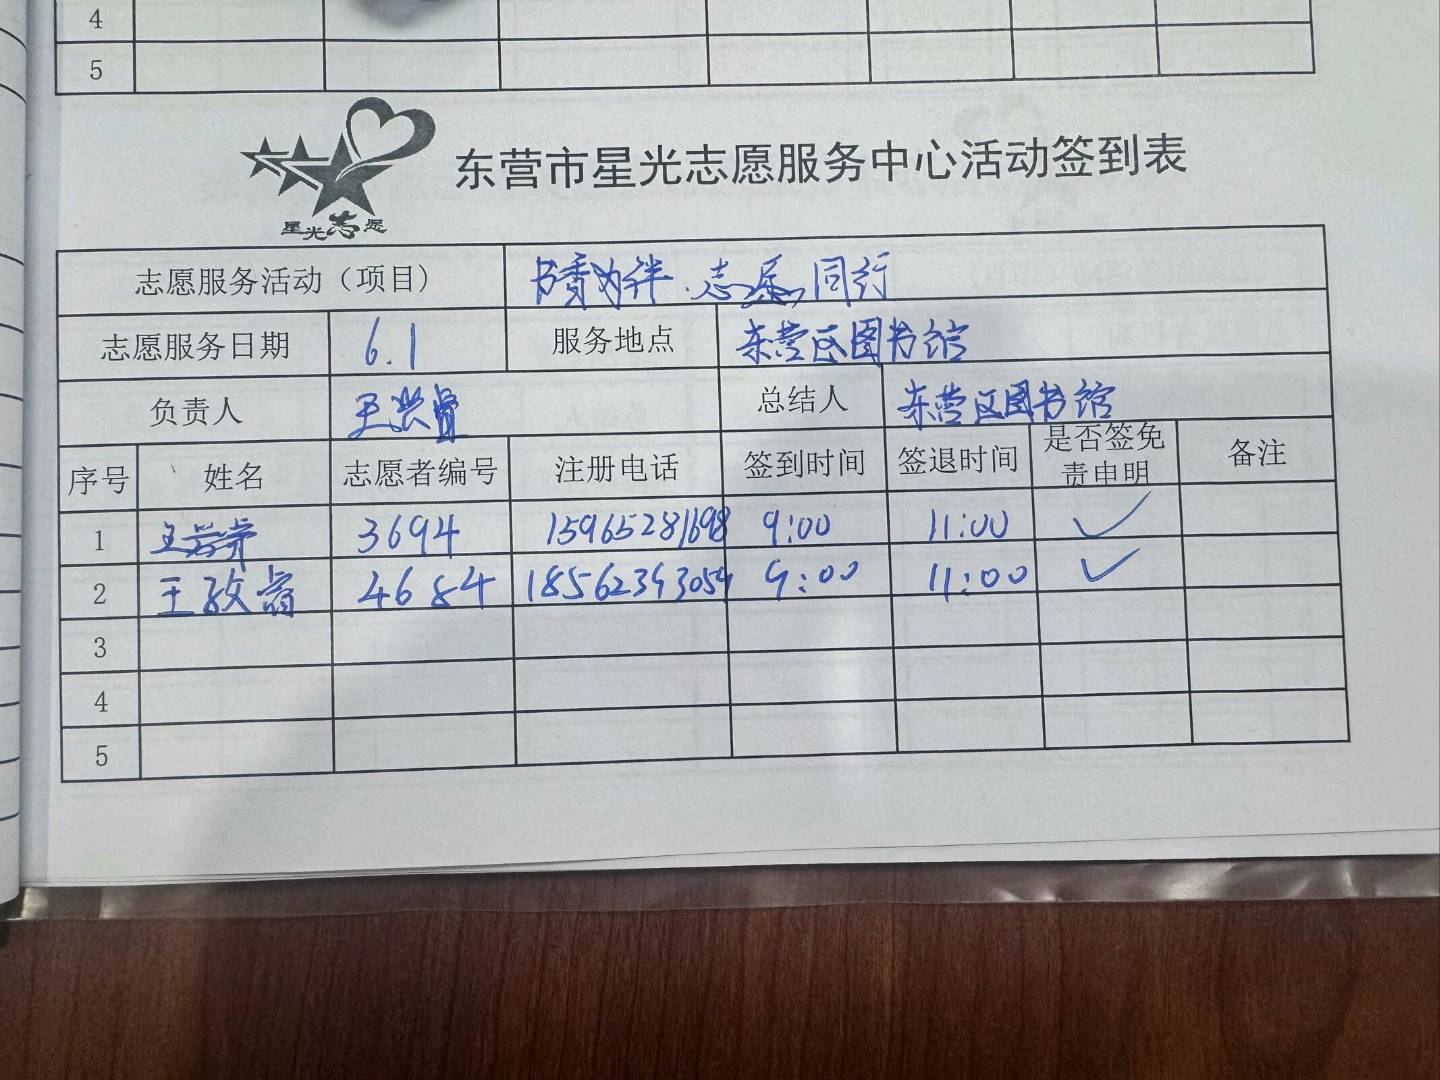 4
5
星光志愿
东营市星光志愿服务中心活动签到表
志愿服务活动（项目） 书香为伴.志愿同行
志愿服务日期 6.1 服务地点 东营区图书馆
负责人 王 总结人 东营区图书馆
序号 姓名 志愿者编号 注册电话 签到时间 签退时间 是否签免责申明 备注
1 王 3694 15965281698 9:00 11:00 ✓
2 王 睿 4684 18562393059 9:00 11:00 ✓
3
4
5